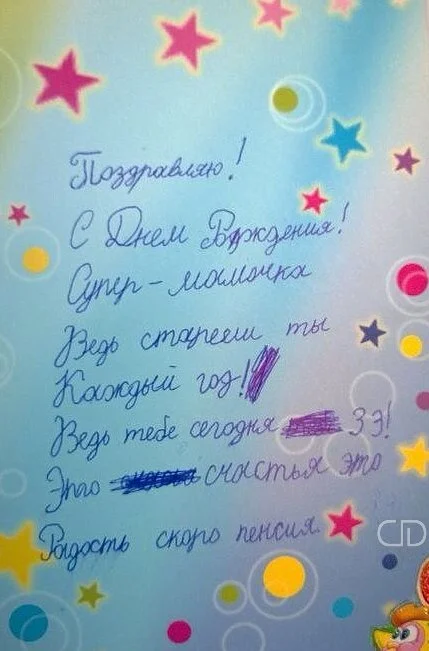 Поздравляю!
С Днем Вождения!
Супер-мамочка
Ведь старееш ты
Каждый год!
Ведь тебе сегодня 33!
Это счастья это
Радость скоро пенсия